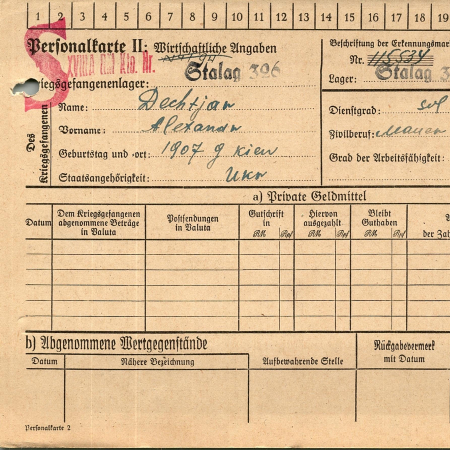 1 2 3 4 5 6 7 8 9 10 11 12 13 14 15 16 17 18 19
Personalkarte II: Wirtschaftliche Angaben
Beschriftung der Erkennungsmar
Nr. 115534
XVIIIA Kfg. Nr.
Stalag 396
Lager: Stalag 3
Kriegsgefangenenlager:
Des Kriegsgefangenen
Name: Dechtjar
Dienstgrad: sol
Vorname: Alexandr
Zivilberuf: Mauer
Geburtstag und -ort: 1907 g Kiew
Grad der Arbeitsfähigkeit:
Staatsangehörigkeit: Ukr
a) Private Geldmittel
Datum
Dem Kriegsgefangenen abgenommene Beträge in Valuta
Postsendungen in Valuta
Gutschrift in
RM Rpf
Hiervon ausgezahlt
RM Rpf
Bleibt Guthaben
RM Rpf
der Zah
b) Abgenommene Wertgegenstände
Datum
Nähere Bezeichnung
Aufbewahrende Stelle
Rückgabevermerk
mit Datum
Personalkarte 2